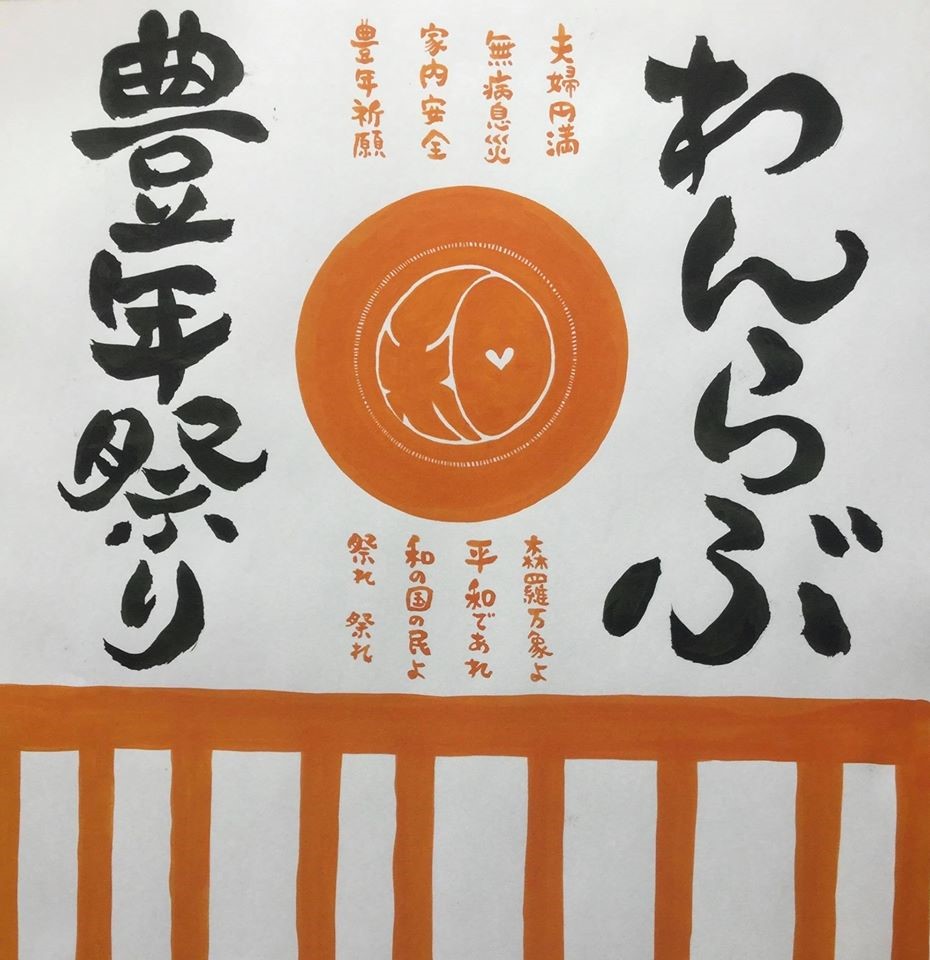 わんらぶ
夫婦円満
無病息災
家内安全
豊年祈願
森羅万象よ
平和であれ
和の国の民よ
祭れ 祭れ
豊年祭り